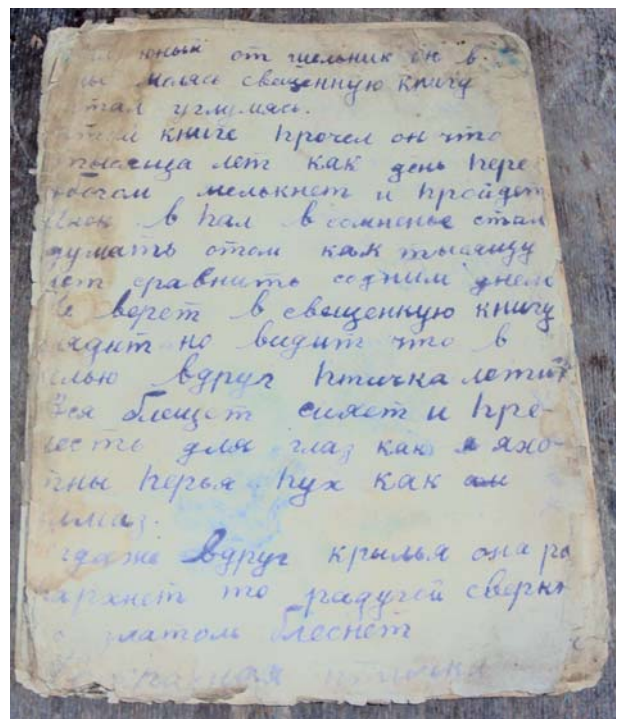 юный от шельник он в
молясь священную книгу
стал углумясь.
этой книге прочел он что
тысяща лет как день пере
богом мелькнет и пройдет
инок в пал в сомненье стал
думать отом как тысящу
лет сравнить содним днем
не верет в священную книгу
глядит но видит что в
келью вдруг птичка летит
Вся блещет сияет и пре-
лесть для глаз как яхо-
нты перья пух как
алмаз.
когдаже вдруг крылья она ра
спархнет то радугой сверкн
то златом блеснет
птичка